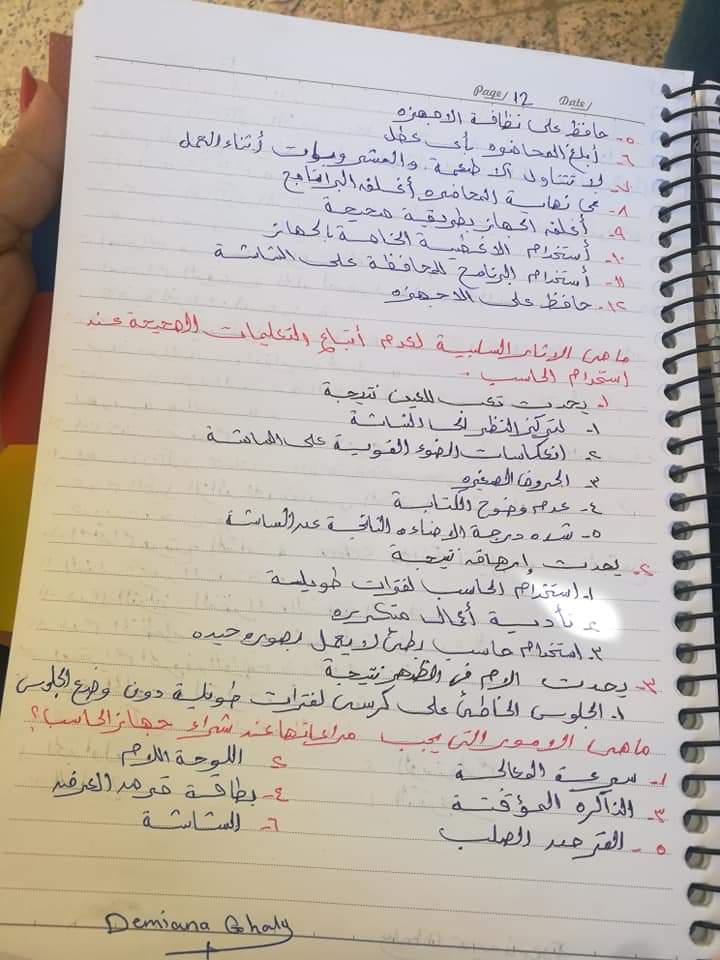 Page/ 12 Date/
٥- حافظ على نظافة الاجهزه
٦- أبلغ المحاضره بأى عطل
٧- لا تتناول الاطعمة والمشروبات أثناء العمل
٨- فى نهاية المحاضره أغلق البرنامج
٩- أغلق الجهاز بطريقة صحيحة
١٠- أستخدام الاغطية الخاصة بالجهاز
١١- أستخدام البرنامج للمحافظة على الشاشة
١٢- حافظ على الاجهزه
ماهى الاثار السلبية لعدم أتباع التعليمات الصحيحة عند
استخدام الحاسب .
١- يحدث تعب للعين نتيجة
١- لتركيز النظر نحو الشاشة
٢- انعكاسات الضوء القوية على الشاشة
٣- الحروف الصغيره
٤- عدم وضوح الكتابة
٥- شده درجة الاضاءه الناتجة عند الشاشة
٢- يحدث إرهاق نتيجة
١- استخدام الحاسب لفترات طويلة
٢- تأدية أعمال متكرره
٣- استخدام حاسب بطئ لا يعمل بصوره جيده
٣- يحدث الام فى الظهر نتيجة
١- الجلوس الخاطئ على كرسى لفترات طويلة دون وضع الجلوس
ماهى الامور التى يجب مراعاتها عند شراء جهاز الحاسب؟
١- سرعة المعالجة ٢- اللوحة الام
٣- الذاكره المؤقتة ٤- بطاقة العرض
٥- القرص الصلب ٦- الشاشة
Demiana Ghaly